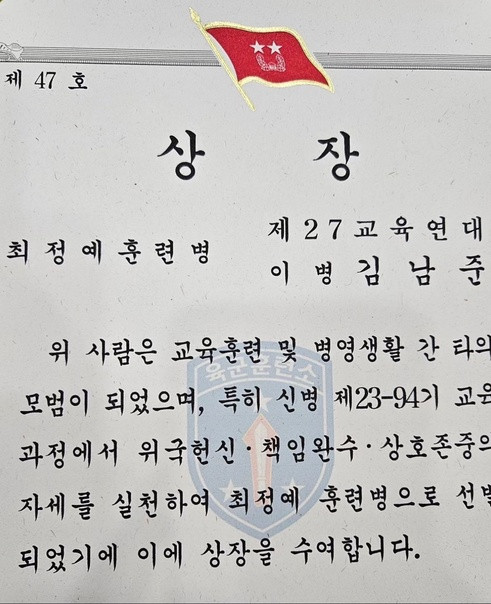 제 47 호
상 장
제27교육연대
최정예훈련병
이병 김남준
위 사람은 교육훈련 및 병영생활 간 타의
모범이 되었으며, 특히 신병 제23-94기 교육
과정에서 위국헌신·책임완수·상호존중의
자세를 실천하여 최정예 훈련병으로 선발
되었기에 이에 상장을 수여합니다.
육군훈련소